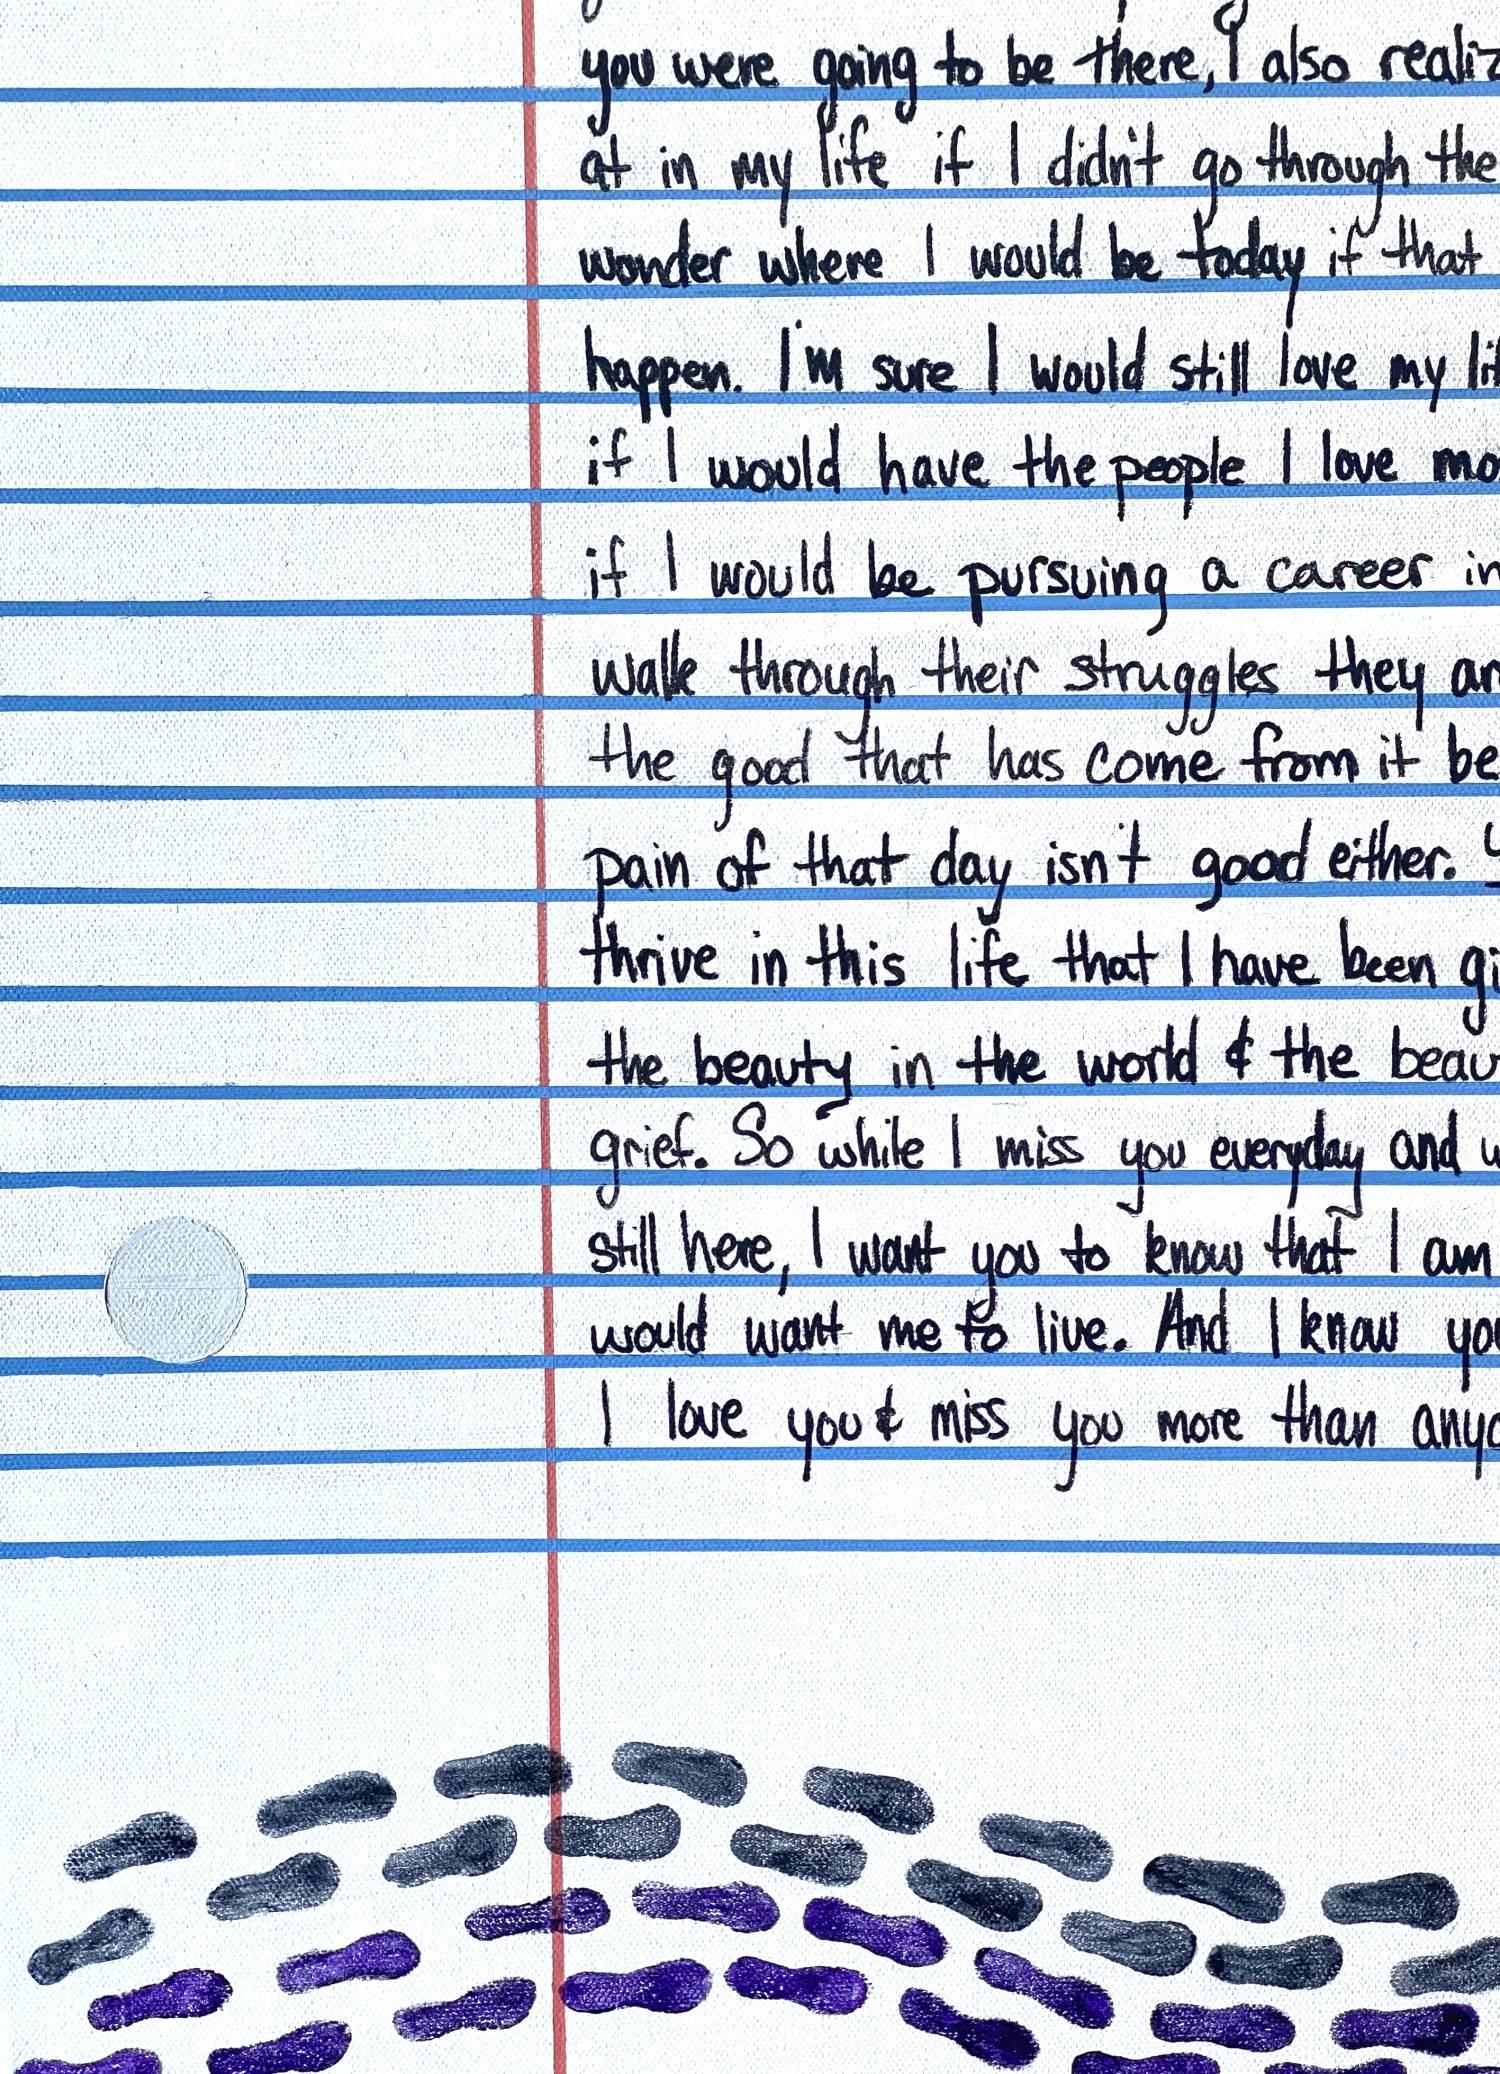 you were going to be there, I also
at in my life if I didn't go through the
wonder where I would be today if that
happen. I'm sure I would still love my
if I would have the people I love
if I would be pursuing a career in
walk through their struggles they
the good that has come from it
pain of that day isn't good either.
thrive in this life that I have been
the beauty in the world & the
grief. So while I miss you everyday and
still here, I want you to know that I am
would want me to live. And I know
I love you & miss you more than